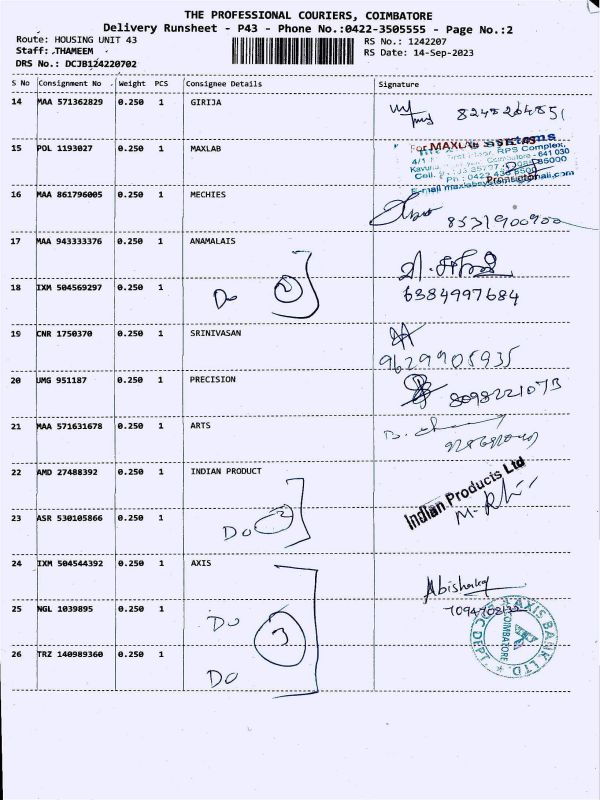 THE PROFESSIONAL COURIERS, COIMBATORE
Delivery Runsheet - P43 - Phone No.:0422-3505555 - Page No.:2
Route: HOUSING UNIT 43 RS No.: 1242207
Staff: THAMEEM RS Date: 14-Sep-2023
DRS No.: DCJB124220702
S No Consignment No Weight PCS Consignee Details Signature
14 MAA 571362829 0.250 1 GIRIJA
8248264851
15 POL 1193027 0.250 1 MAXLAB
For MAXLAB SYSTEMS
RPS Complex,
Coimbatore - 641 030
Proprietor
16 MAA 861796005 0.250 1 MECHIES
8531900900
17 MAA 943333376 0.250 1 ANAMALAIS
18 IXM 504569297 0.250 1 Do 2
6384997684
19 CNR 1750370 0.250 1 SRINIVASAN
9629905935
20 UMG 951187 0.250 1 PRECISION
8098221073
21 MAA 571631678 0.250 1 ARTS
22 AMD 27488392 0.250 1 INDIAN PRODUCT
Indian Products Ltd
23 ASR 530105866 0.250 1 Do 2
24 IXM 504544392 0.250 1 AXIS
Abishek
25 NGL 1039895 0.250 1 Do 3
AXIS BANK LTD.
COIMBATORE
26 TRZ 140989360 0.250 1 Do